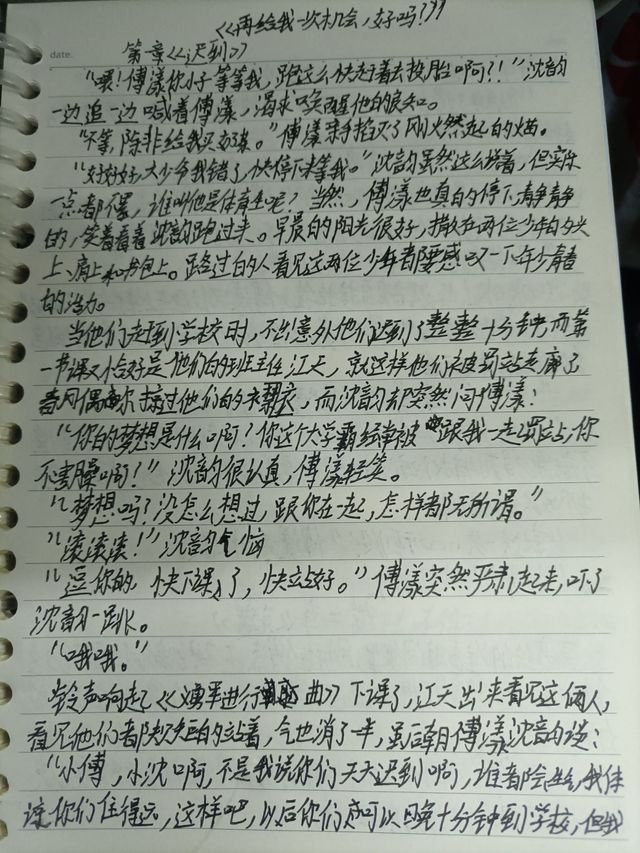 《再给我一次机会，好吗?》
date.
第章《迟到》
"喂!傅漾你小子等等我，跑这么快赶着去投胎啊?!"沈韵
一边追一边喊着傅漾，渴求唤醒他的良知。
"不等，除非给我买奶。"傅漾 手掐灭了刚火然起的烟。
"好好好，大少爷我错了，快停下来等我。"沈韵虽然这么说着，但实际
一点都不累，谁叫他是体育生呢?当然，傅漾也真的停下，静静
的，笑着看着沈韵跑过来。早晨的阳光很好，撒在两位少年的头
上、肩上和书包上。路过的人看见这两位少年都要感叹一下年少青春
的活力。
当他们走到学校时，不出意外他们迟到了整整十分钟，而第
一节课又恰好是他们的班主任江天，就这样他们被罚站走廊了
春风偶尔掠过他们的 ，而沈韵却突然问傅漾:
"你的梦想是什么啊?你这个大学霸经常被 跟我一起罚站，你
不害臊啊!"沈韵很认真，傅漾轻笑。
"梦想吗?没怎么想过，跟你在一起，怎样都无所谓。"
"滚滚滚!"沈韵气恼
"逗你的，快下课了，快站好。"傅漾突然严肃起来，吓了
沈韵一跳。
"哦哦。"
铃声响起《 进行曲》下课了，江天出来看见这俩人，
看见他们者 的站着，气也消了一半，虽后朝傅漾沈韵说:
"小傅，小沈啊，不是我说你们天天迟到啊，谁都会 ，我体
谅你们住得远，这样吧，以后你们 可以晚十分钟到学校，但我